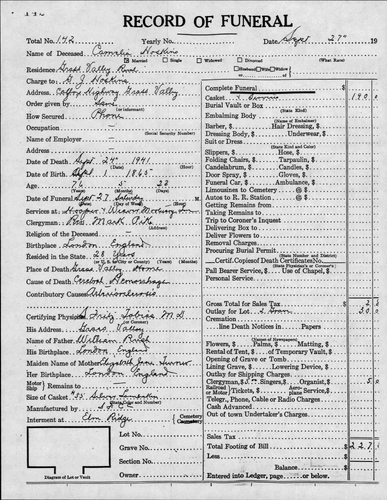 RECORD OF FUNERAL
Total No. 142 Yearly No. Date Sept. 27 19
Name of Deceased Hoskins
Married Single Widowed Divorced (What Race)
Residence Grass Valley Husband Wife of
Charge to Hoskins
Address Colfax Highway Grass Valley
Order given by Same
(or informant)
How Secured Phone
Occupation
(Social Security Number)
Name of Employer
Address
Date of Death Sept. 24 1941
(Hour)
Date of Birth Sept. 1 1865
Age 76
(Years) (Months) (Days)
Date of Funeral Sept 27 Saturday
(Date) (Day of Week) (Hour)
Services at Hooper & Weaver Mortuary
Clergyman Rev. Mark
(Address)
Religion of the Deceased
Birthplace London England
Resided in the State 28 Years
(or U. S. or City or County) (Years) (Months)
Place of Death Grass Valley Home
Cause of Death Cerebral Hemorrhage
Contributory Causes Arteriosclerosis
Certifying Physician Fritz M.D.
(or Coroner)
His Address Grass Valley
Name of Father William
His Birthplace London England
Maiden Name of Mother Elizabeth Ann
Her Birthplace London England
Motor Ship Remains to
Size of Casket
(State Color and Number)
Manufactured by
Interment at Elm Ridge Cemetery Crematory
Lot No.
Grave No.
Section No.
Owner
Diagram of Lot or Vault
Complete Funeral $
Casket & Service 190 0
Burial Vault or Box
(State Kind)
Embalming Body
(Name of Embalmer)
Barber, $ Hair Dressing, $
Dressing Body, $ Underwear, $
Suit or Dress
(State Kind and Color)
Slippers, $ Hose, $
Folding Chairs, $ Tarpaulin, $
Candelabrum, $ Candles, $
Door Spray, $ Gloves, $
Funeral Car, $ Ambulance, $
Limousines to Cemetery @ $
Autos to R. R. Station @ $
Getting Remains from
Taking Remains to
Trip to Coroner's Inquest
Delivering Box to
Deliver Flowers to
Removal Charges
Procuring Burial Permit
(State Number and District)
Certif. Copies of Death Certificates No.
(State Physician's or Coroner's)
Pall Bearer Service, $ Use of Chapel, $
Personal Service
Gross Total for Sales Tax $
Outlay for Lot 30 0
Cremation
line Death Notices in Papers
(Names of Newspapers)
Flowers, $ Palms, $ Matting, $
Rental of Tent, $ of Temporary Vault, $
Opening of Grave or Tomb
Lining Grave, $ Lowering Device, $
Outlay for Shipping Charges
Clergyman, $ Singers, $ Organist, $ 5 0
Railroad Motor Tickets, $ Aeroplane Service, $
Teleg., Phone, Cable or Radio Charges
Cash Advanced
Out of town Undertaker's Charges
Sales Tax
Total Footing of Bill $ 227
Less
Balance $
Entered into Ledger, page or below.